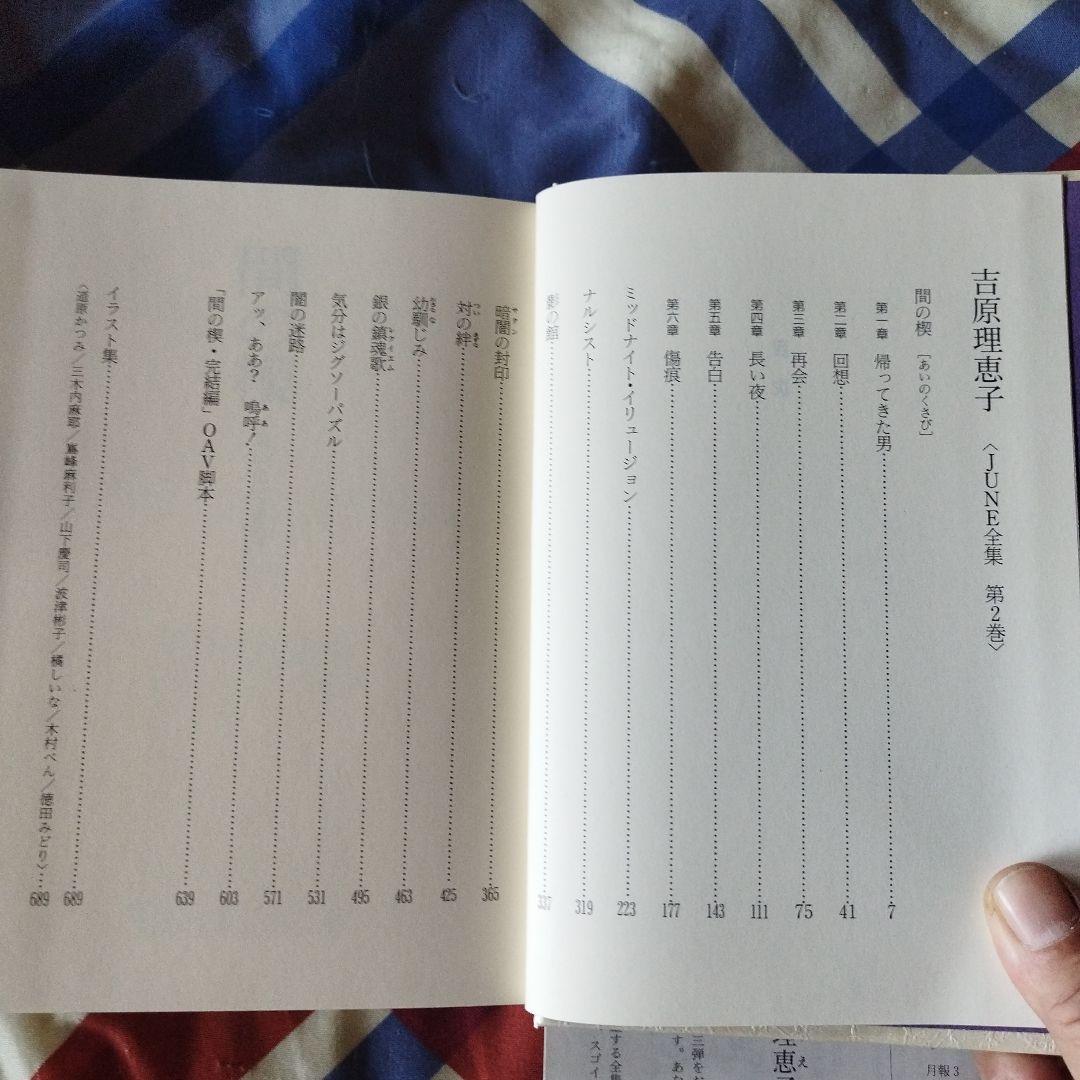 吉原理恵子 〈JUNE全集 第2巻〉
間の楔 [あいのくさび]
第一章 帰ってきた男 7
第二章 回想 41
第三章 再会 75
第四章 長い夜 111
第五章 告白 143
第六章 傷痕 177
ミッドナイト・イリュージョン 223
ナルシスト 319
影の館 337
暗闇の封印 365
対の絆 425
幼馴じみ 463
銀の鎮魂歌 495
気分はジグソーパズル 531
闇の迷路 571
アッ、ああ? 嗚呼! 603
「間の楔・完結編」OAV脚本 639
イラスト集 689
〈道原かつみ／三木内麻耶／嶌峰麻利子／山下慶司／波津彬子／橘しいな／木村べん／徳田みどり〉 689
理恵子
月報3
三弾をお
す。あな
する全集
スゴイ